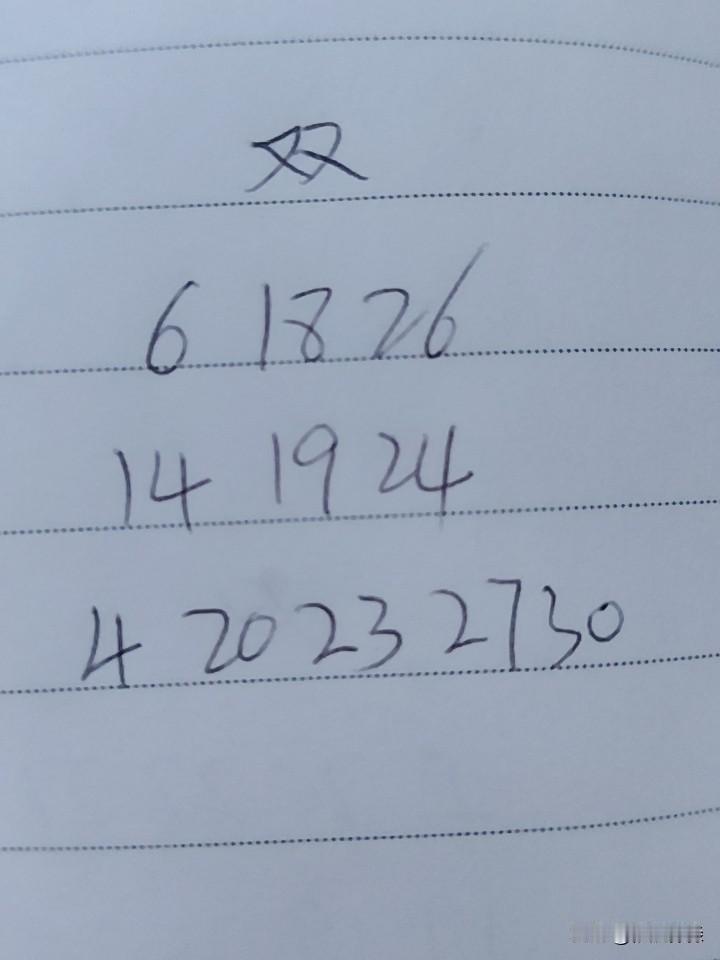 双
6 18 26
14 19 24
4 20 23 27 30